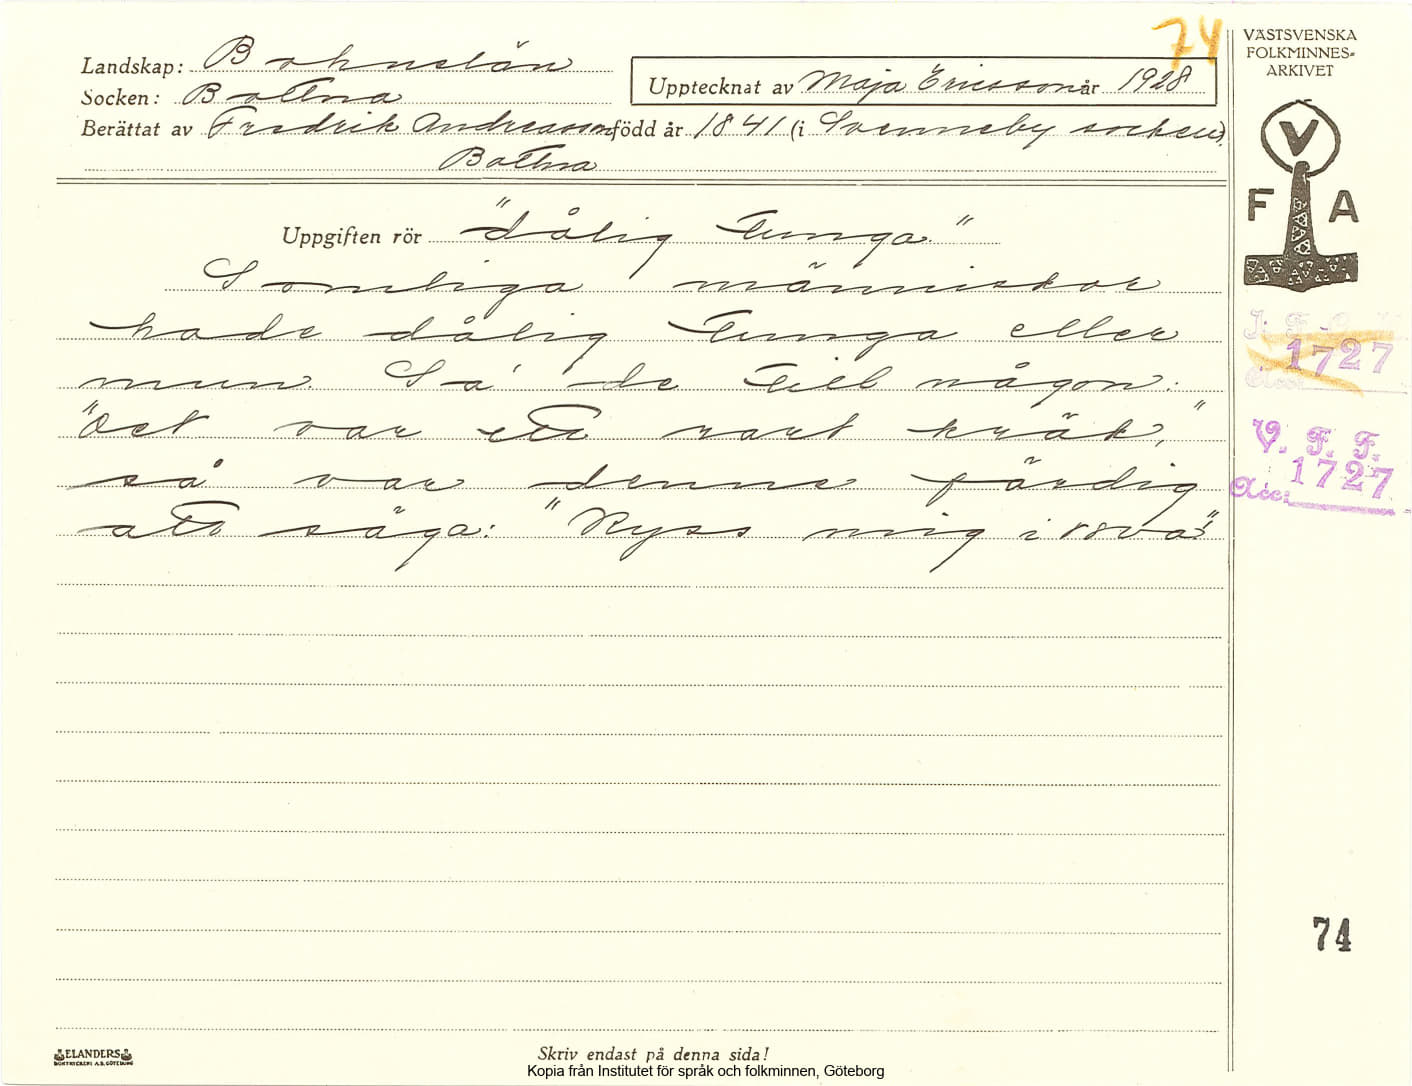 74
VÄSTSVENSKA
FOLKMINNES-
ARKIVET
Landskap: Bohuslän
Upptecknat av Maja Ericsson år 1928
Socken: Bottna
Berättat av Fredrik Andreasson född år 1841 (i Svenneby socken).
Bottna
V
F A
Uppgiften rör "dålig tunga."
Somliga människor
hade dålig tunga eller
mun. Sa' de till någon:
"Det var ett rart kräk,"
så var denne färdig
att säga: "Kyss mig i röva!"
1727
V. F. F.
1727
Acc:
74
ELANDERS
BOKTRYCKERI A.B. GÖTEBORG
Skriv endast på denna sida!
Kopia från Institutet för språk och folkminnen, Göteborg